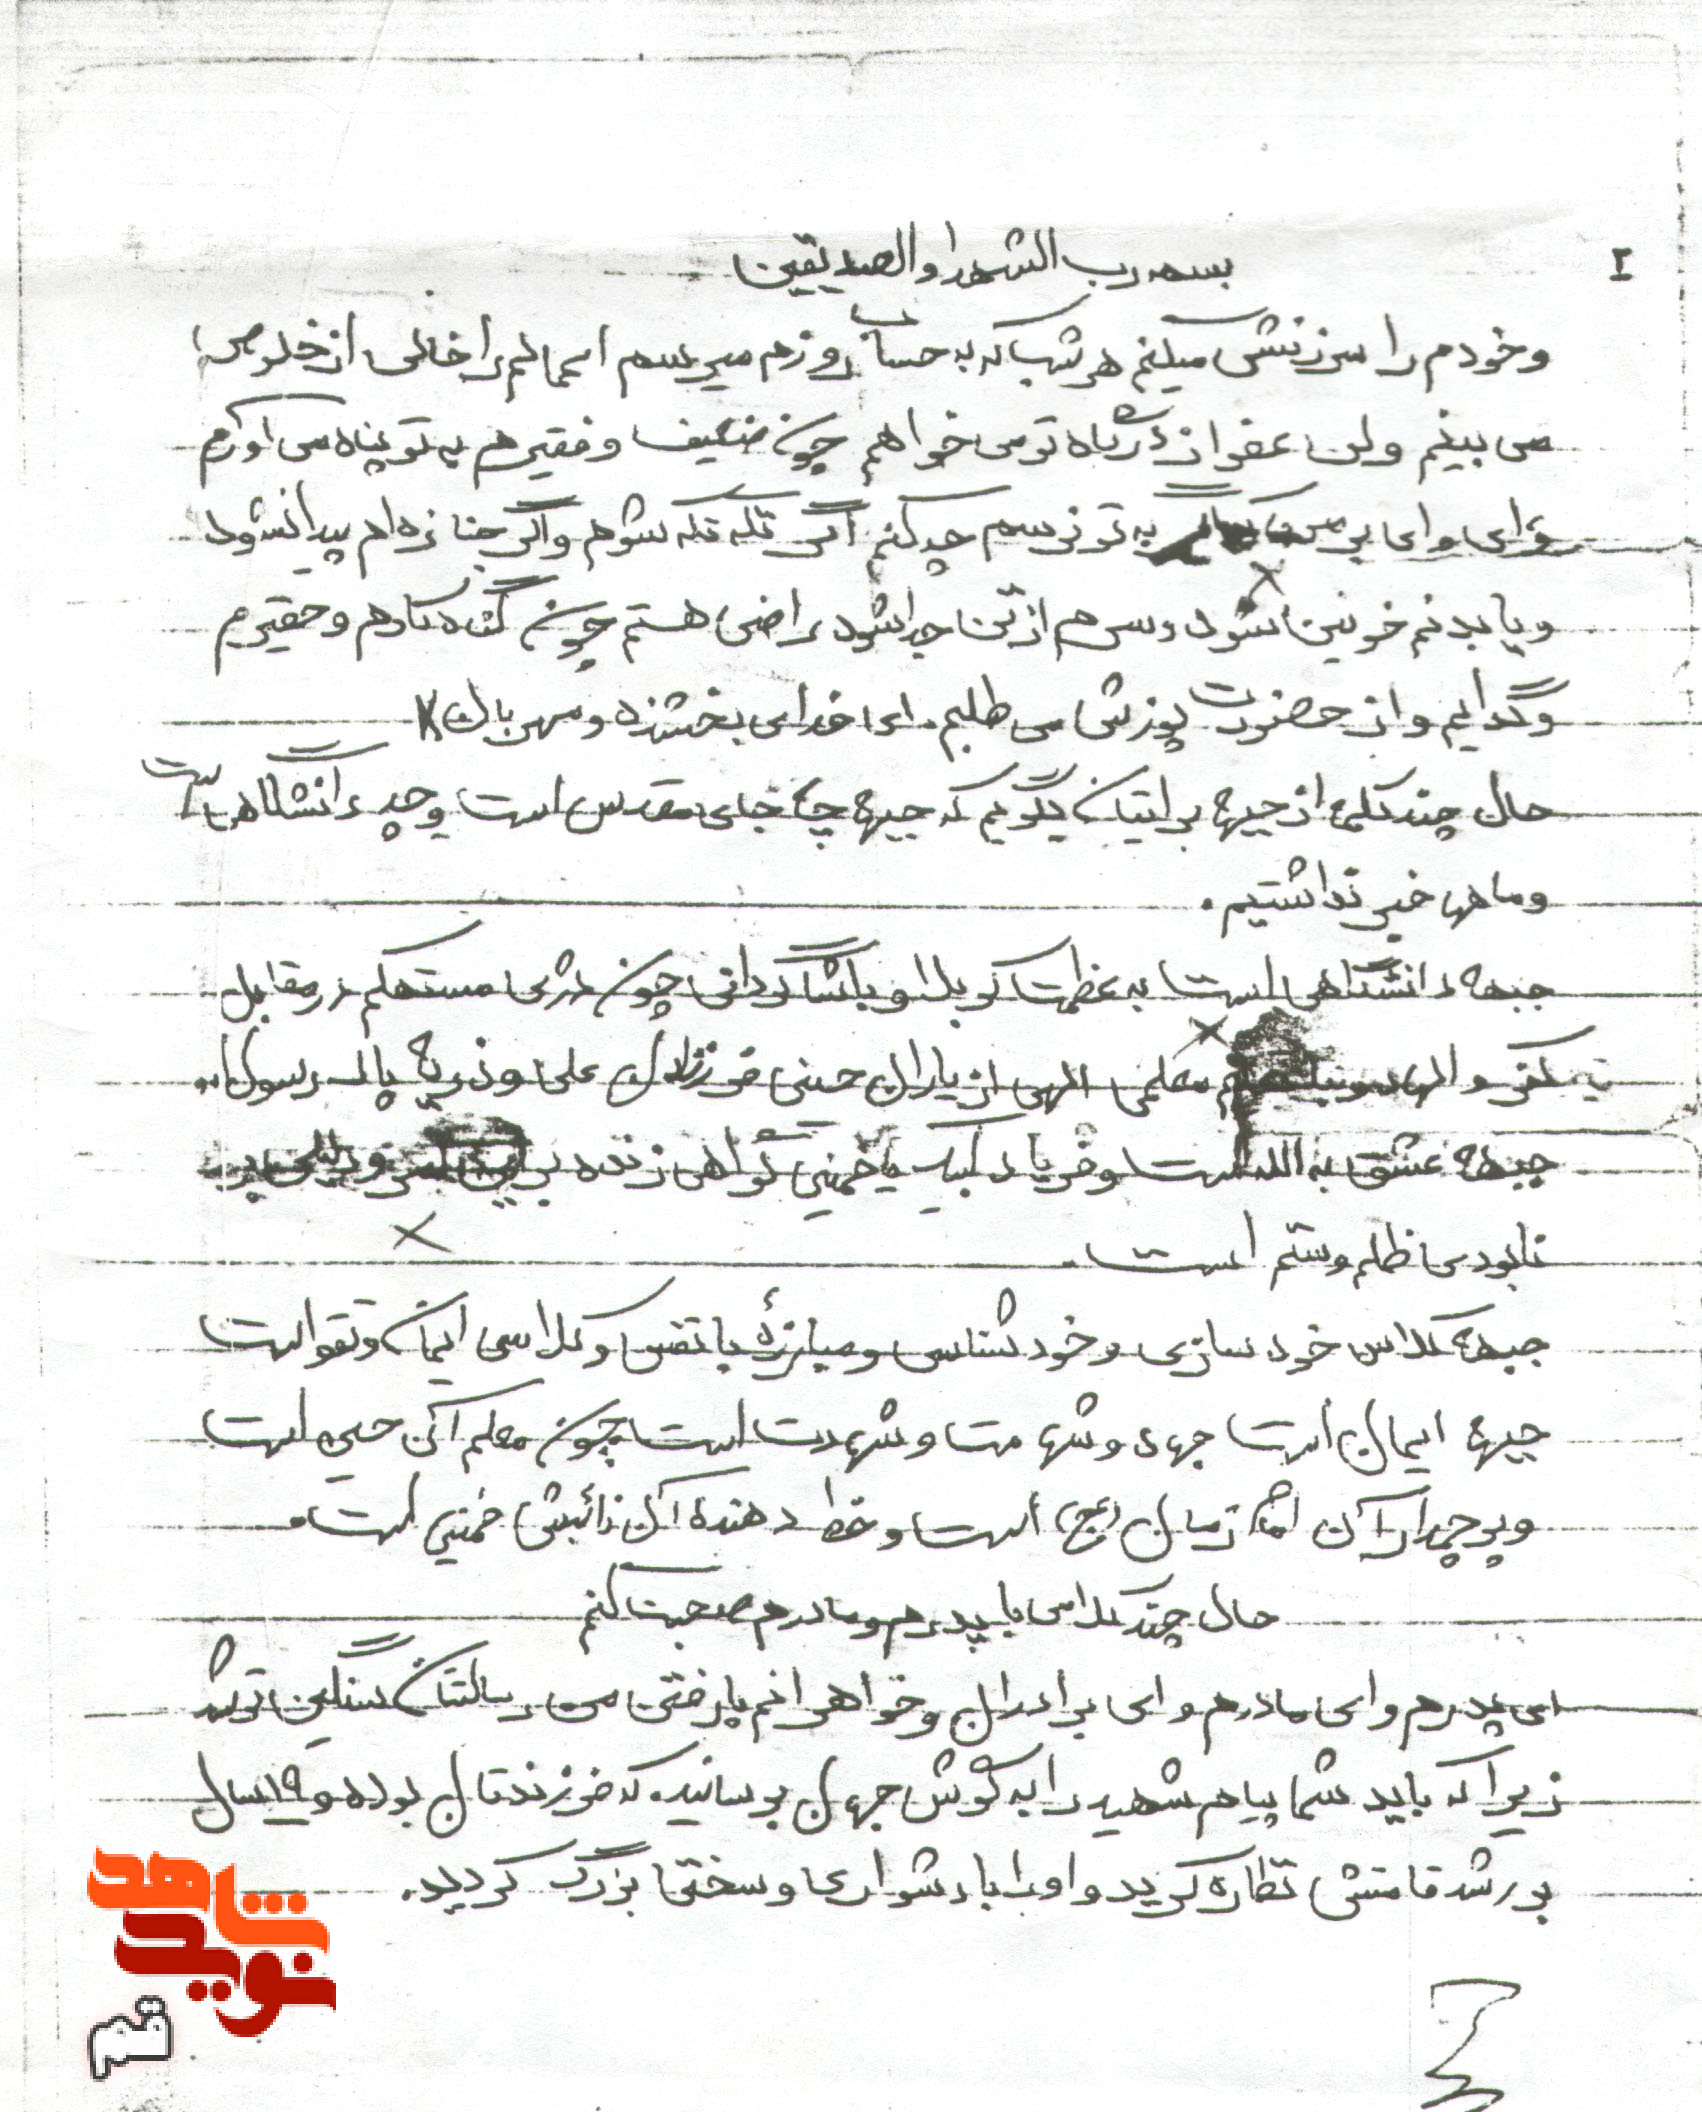 بسمه رب الشهدا والصدیقین
وخودم را سرزنش میکنم هر شب که به حساب روزم میرسم اعمالم را خالی از خلوص
می بینم ولی عفو از درگاه تو می خواهم چون ضعیف و فقیرم به تو پناه می آورم
وای وای بر من به تو نرسم چه کنم اگر تکه تکه شوم و اگر جنازه ام پیدا نشود
و یا بدنم خونین شود و سرم از تن جدا شود راضی هستم چون گنه کارم و حقیرم
و گدایم و از حضورت پوزش می طلبم. ای خدای بخشنده و مهربان
حال چند کلمه از جبهه برایتان بگویم که جبهه چه جای مقدس است و چه دانشگاهیست
وماهی خبر نداشتیم.
جبهه دانشگاهی است به عظمت کربلا و با شاگردانی چون دژی مستحکم در مقابل
کفر و معلمی الهی از یاران حسینی فرزندان علی و ذریه پاک رسول ا..
جبهه عشق به الله است و فریاد لبیک یا خمینی گواهی زنده بر
نابودی ظلم و ستم است.
جبهه کلاس خود سازی و خود شناسی و مبارزهٔ با نفس و کلاس ایمان و تقواست
جبهه ایمان است جهاد و شهامت و شهادت است چون معلم آن حسین است
و پرچمدار آن امام زمان (عج) است و خط دهنده آن نائبش خمینی است.
حال چند کلامی با پدرم و مادرم صحبت کنم
ای پدرم و ای مادرم و ای برادران و خواهرانم با رفتن من رسالتتان سنگین تر شد
زیرا که باید شما پیام شهید را به گوش جهان برسانید. که فرزندتان بوده و ۱۹ سال
بر رشد قامتش نظاره کردید و او را با دشواری و سختی بزرگ کردید.
شاهد
نوید
قم